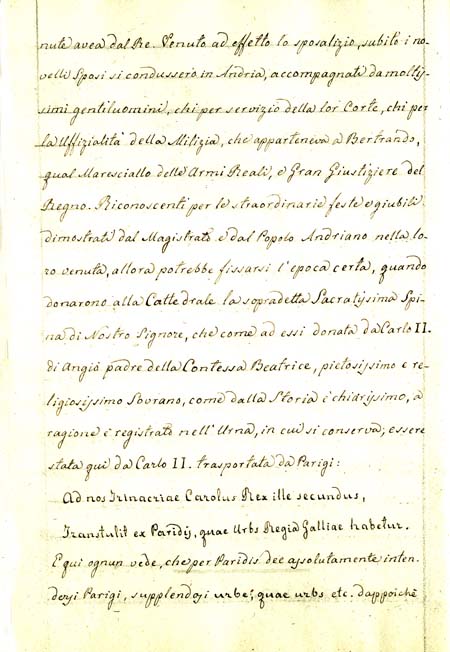 nute avea dal Re. Venuto ad effetto lo sposalizio, subito i no-
velli Sposi si condussero in Andria, accompagnati da moltis-
simi gentiluomini, chi per servizio della lor Corte, chi per
la Uffizialità della Milizia, che apparteneva a Bertrando,
qual Maresciallo delle Armi Reali, e Gran Giustiziere del
Regno. Riconoscenti per le straordinarie feste e giubili
dimostrati dal Magistrato e dal Popolo Andriano nella lo-
ro venuta, allora potrebbe fissarsi l'epoca certa, quando
donarono alla Cattedrale la sopradetta Sacratissima Spi-
na di Nostro Signore, che come ad essi donata da Carlo II.
di Angiò padre della Contessa Beatrice, pietosissimo e re-
ligiosissimo Sovrano, come dalla Storia è chiarissimo, a
ragione è registrato nell'Urna, in cui si conserva, essere
stata qui da Carlo II. trasportata da Parigi:
Ad nos Trinacriae Carolus Rex ille secundus,
Transtulit ex Paridis, quae Urbs Regia Galliae habetur.
E qui ognun vede, che per Paridis dee assolutamente inten-
dersi Parigi, supplendosi urbe, quae urbs etc. dappoichè